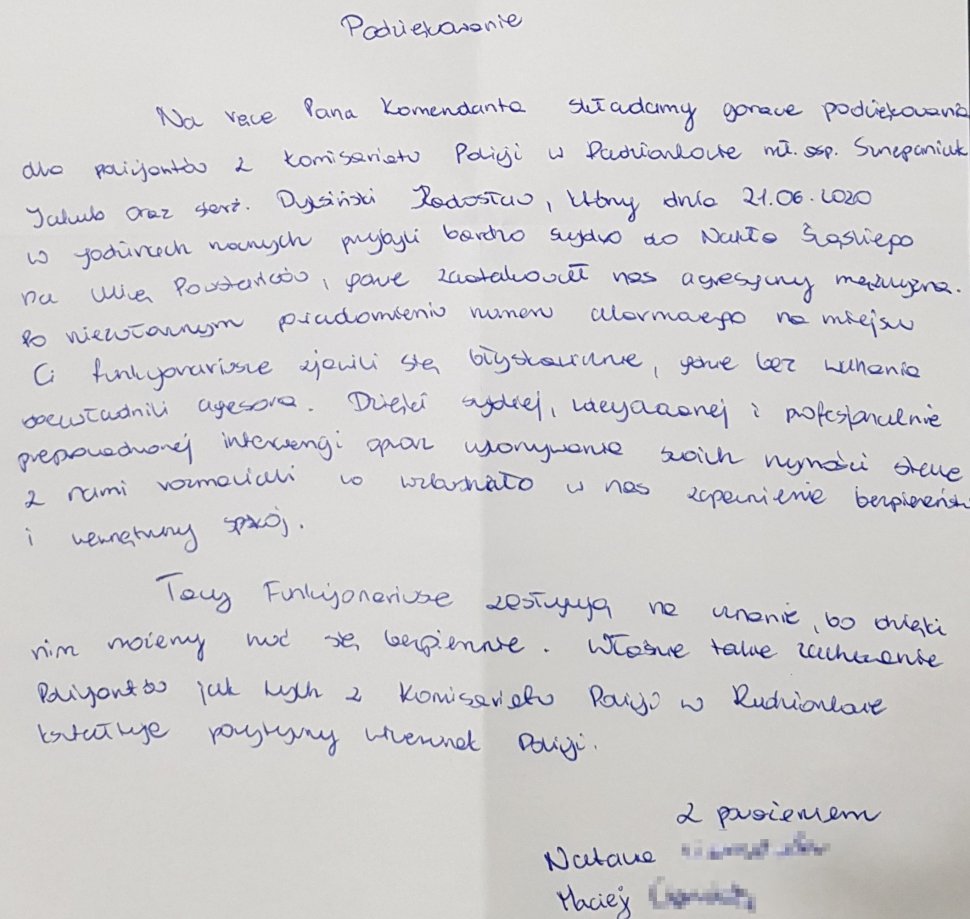 Podziękowanie
Na ręce Pana Komendanta składamy gorące podziękowania
dla policjantów z Komisariatu Policji w Radzionkowie mł. asp. Szczepaniuk
Jakub oraz sierż. Dyksiński Radosław, którzy dnia 21.06.2020
w godzinach nocnych przybyli bardzo szybko do Nakło Śląskiego
na ulicę Powstańców, gdzie zaatakował nas agresywny mężczyzna.
Po niezwłocznym powiadomieniu numeru alarmowego na miejscu
Ci funkcjonariusze zjawili się błyskawicznie, gdzie bez wahania
obezwładnili agresora. Dzięki szybkiej, zdecydowanej i profesjonalnie
przeprowadzonej interwencji oraz wykonywanie swoich czynności stale
z nami rozmawiali co wzbudzało w nas zapewnienie bezpieczeństwa
i wewnętrzny spokój.
Tacy Funkcjonariusze zasługują na uznanie, bo dzięki
nim możemy czuć się bezpiecznie. Właśnie takie zachowanie
Policjantów jak tych z Komisariatu Policji w Radzionkowie
kształtuje pozytywny wizerunek Policji.
Z poważaniem
Natalia
Maciej